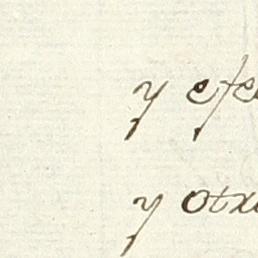 y efe
y otra